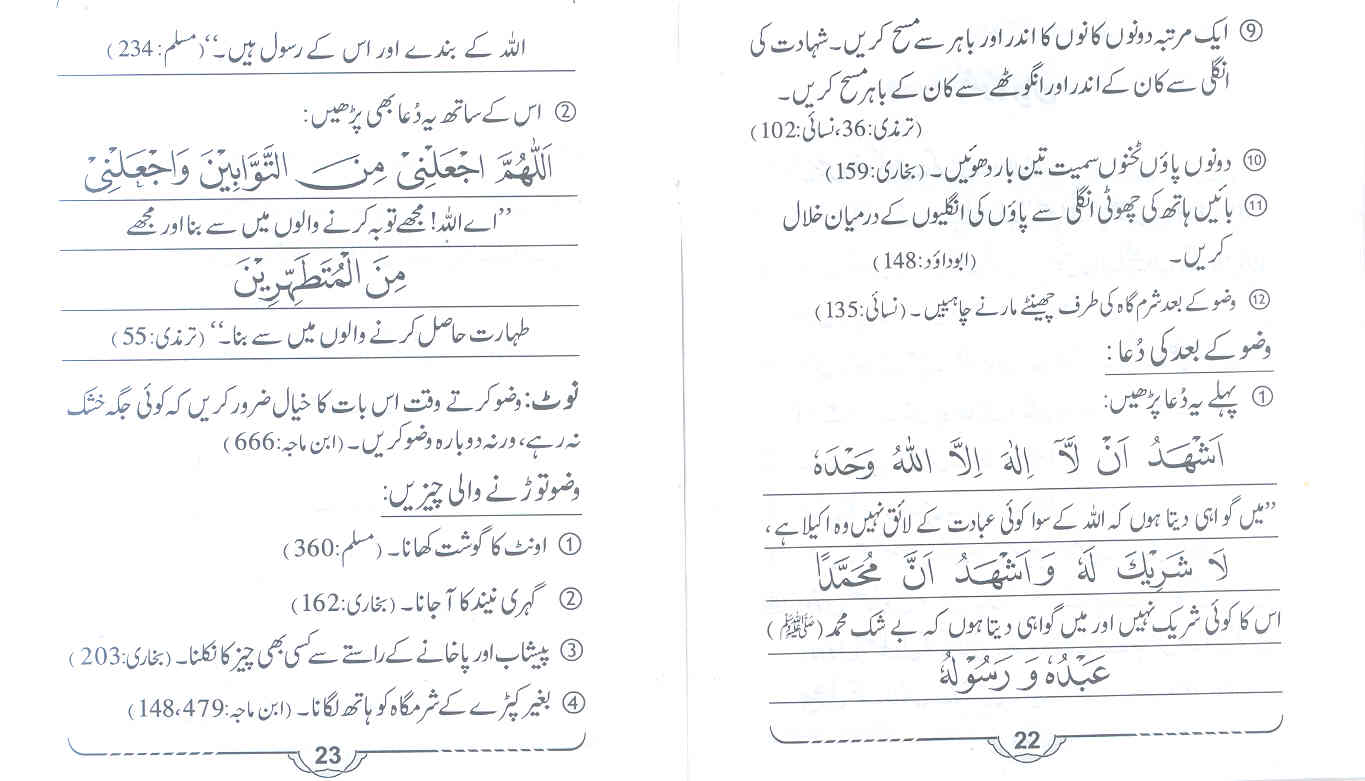 ⑨ ایک مرتبہ دونوں کانوں کا اندر اور باہر سے مسح کریں۔ شہادت کی
انگلی سے کان کے اندر اور انگوٹھے سے کان کے باہر مسح کریں۔
(ترمذی:36، نسائی:102)
⑩ دونوں پاؤں ٹخنوں سمیت تین بار دھوئیں۔ (بخاری:159)
⑪ بائیں ہاتھ کی چھوٹی انگلی سے پاؤں کی انگلیوں کے درمیان خلال
کریں۔ (ابوداؤد:148)
⑫ وضو کے بعد شرم گاہ کی طرف چھینٹے مارنے چاہییں۔ (نسائی:135)
وضو کے بعد کی دُعا:
① پہلے یہ دُعا پڑھیں:
اَشْهَدُ اَنْ لَّآ اِلٰهَ اِلَّا اللّٰهُ وَحْدَهٗ
”میں گواہی دیتا ہوں کہ اللہ کے سوا کوئی عبادت کے لائق نہیں وہ اکیلا ہے،
لَا شَرِيْكَ لَهٗ وَاَشْهَدُ اَنَّ مُحَمَّدًا
اس کا کوئی شریک نہیں اور میں گواہی دیتا ہوں کہ بے شک محمد (ﷺ)
عَبْدُهٗ وَ رَسُوْلُهٗ
22
اللہ کے بندے اور اس کے رسول ہیں۔“ (مسلم:234)
② اس کے ساتھ یہ دُعا بھی پڑھیں:
اَللّٰهُمَّ اجْعَلْنِيْ مِنَ التَّوَّابِيْنَ وَاجْعَلْنِيْ
”اے اللہ! مجھے توبہ کرنے والوں میں سے بنا اور مجھے
مِنَ الْمُتَطَهِّرِيْنَ
طہارت حاصل کرنے والوں میں سے بنا۔“ (ترمذی:55)
نوٹ: وضو کرتے وقت اس بات کا خیال ضرور کریں کہ کوئی جگہ خشک
نہ رہے، ورنہ دوبارہ وضو کریں۔ (ابن ماجہ:666)
وضو توڑنے والی چیزیں:
① اونٹ کا گوشت کھانا۔ (مسلم:360)
② گہری نیند کا آ جانا۔ (بخاری:162)
③ پیشاب اور پاخانے کے راستے سے کسی بھی چیز کا نکلنا۔ (بخاری:203)
④ بغیر کپڑے کے شرمگاہ کو ہاتھ لگانا۔ (ابن ماجہ:148،479)
23